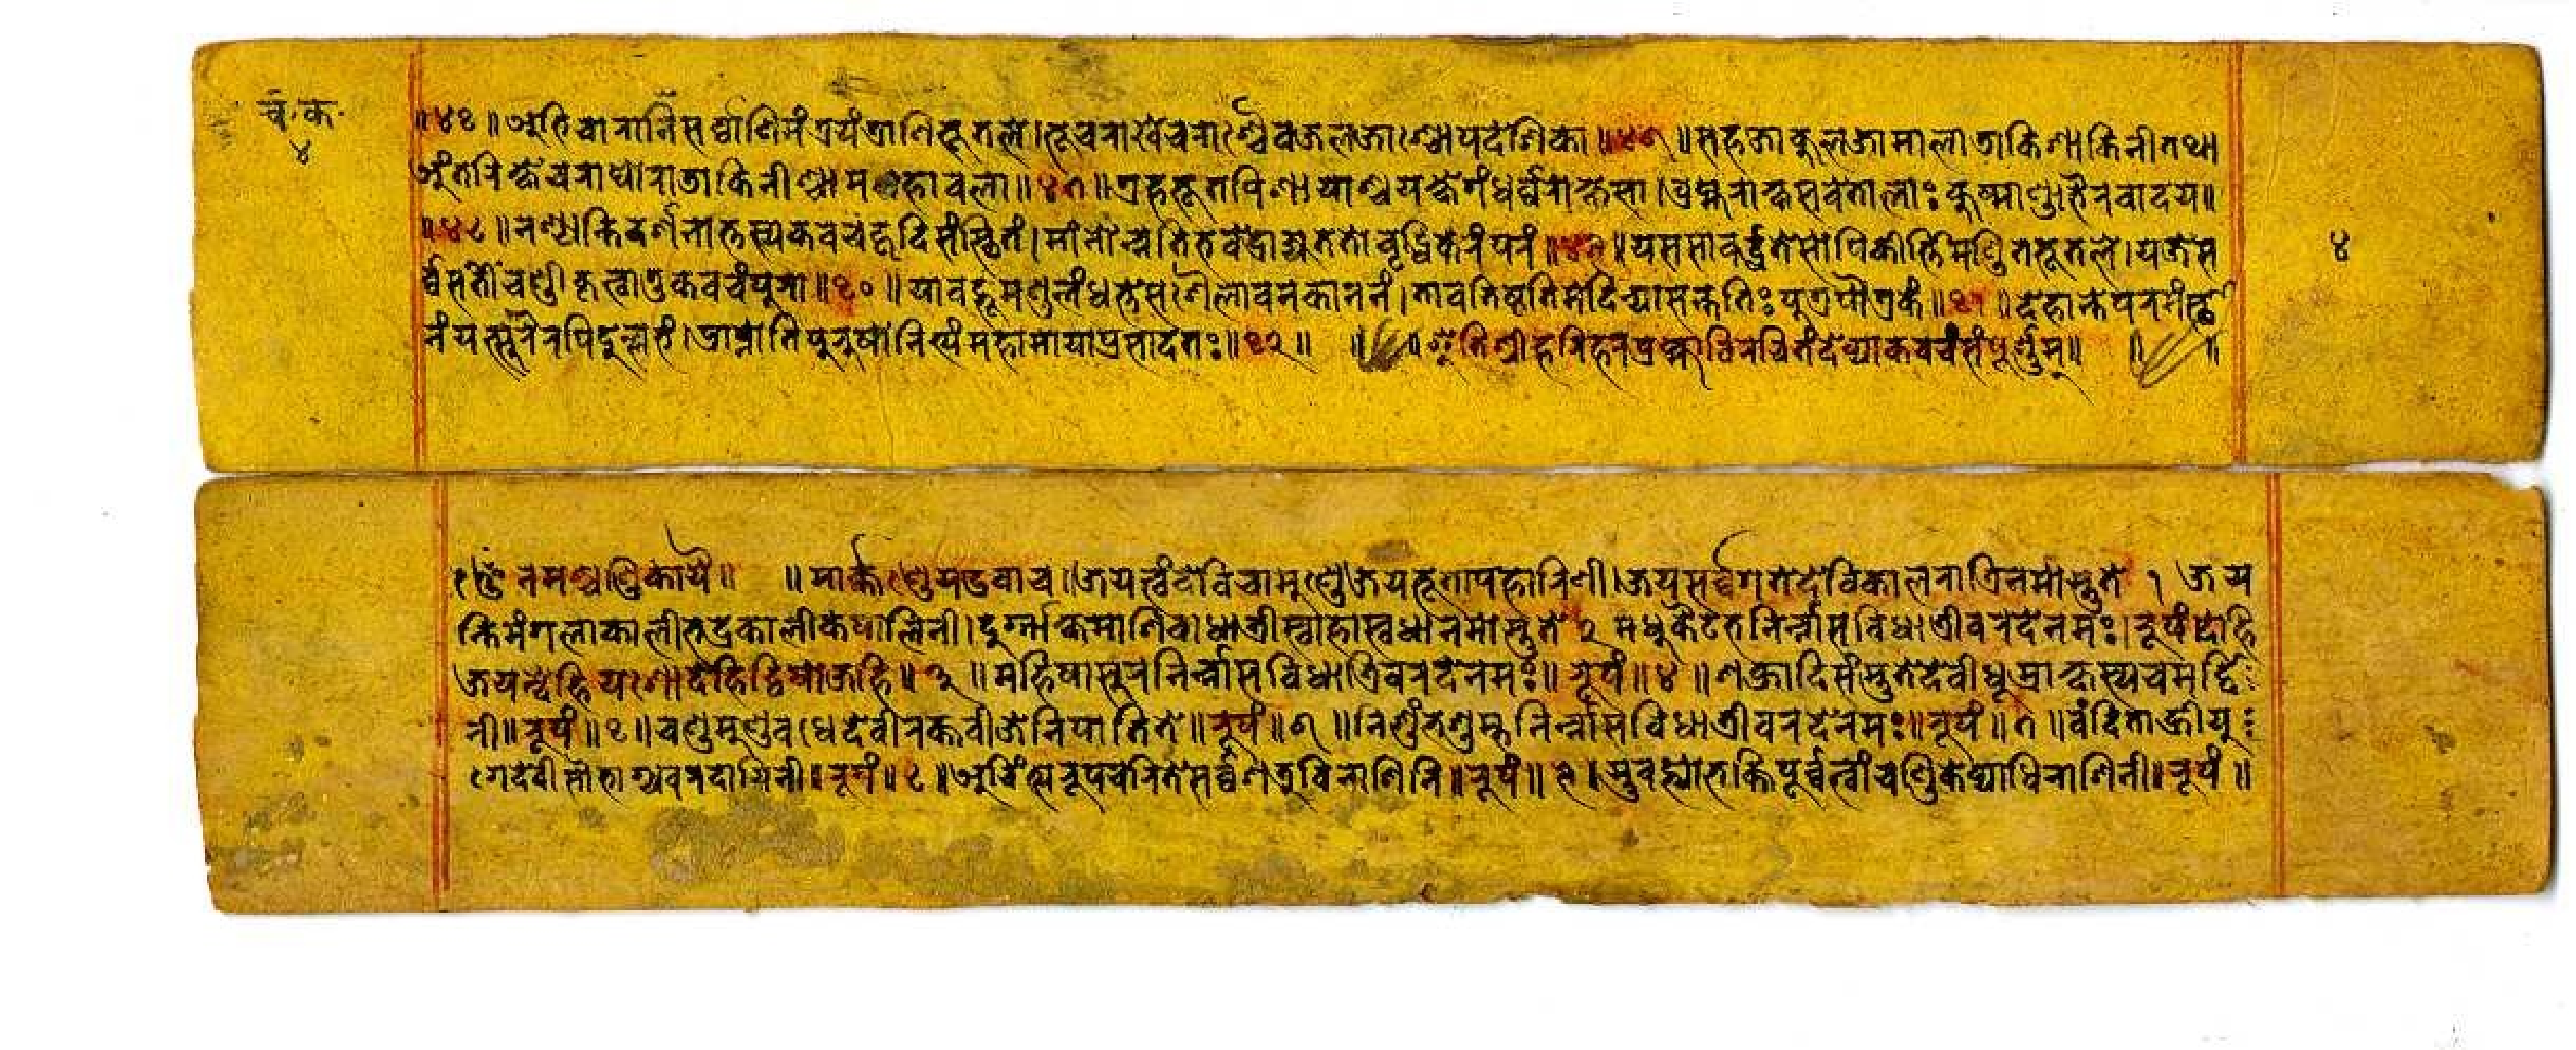 च॰ क॰
४
॥४५॥ अभिचारानि सर्व्वाणि मंत्रयंत्राणि भूतले। भूचरा खेचराश्चैव जलजाश्चोपदेशिका ॥४६॥ सहजा कुलजा माला डाकिशाकिनी तथा
अंतरिक्षेचरा घोरा डाकिनीश्च महावला ॥४७॥ ग्रहभूतपिशाचाश्च यक्षेगंधर्व्वराक्षसा। व्रह्मराक्षसवेतालाः कुष्माण्डा भैरवादय॥
॥४८॥ नश्यन्ति दर्शनात्तस्य कवचं हृदि संस्थितं। मांनोन्नति भवेद्राज्ञ ततो वृद्धिकरं परं ॥४९॥ यससा वर्द्धते सोपि कीर्त्तिमण्डितभूतले। यजेस
र्व्वसतीं चण्डी कृत्वा तु कवचं पुरा ॥५०॥ यावद्भूमण्डलं धत्ते सशैलावनकाननं। तावतिष्ठति मेदिन्या सन्ततिः पुत्रपौत्रकं ॥५१॥ देहान्ते परमं स्था
४
नं यत्सुरैरपि दुल्लभं। प्राप्नोति पुरुषो नित्यं महामायाप्रसादतः ॥५२॥ ॥ ॥ इति श्रीहरिहरव्रह्माविरचितं देव्याकवचं संपूर्णम् ॥ ॥ ॥
नमश्चण्डिकायै॥ ॥ मार्कण्डेय उवाच। जय त्वं देवि चामुण्डे जय भूतापहारिणी। जय सर्व्वगते देवि कालरात्रि नमोस्तुते १ जय
न्ति मंगला काली भद्रकाली कपालिनी। दुर्ग्गा क्षमा शिवा धात्री स्वाहा स्वधा नमोस्तुते २ मधुकैटभनिर्न्नासविधात्री वरदे नमः। रूपं देहि
जयन्देहि यशो देहि द्विषो जहि॥ ३ ॥ महिषासुरनिर्न्नासविधात्रि वरदे नमः॥ रूपं॥ ४ ॥ शक्रादिसंस्तुते देवी धूम्राक्षस्य च मर्द्दि
नी॥ रूपं॥ ५॥ चण्डमुण्डवधे देवी रक्तवीजे निपातिते॥ रूपं॥ ६ ॥ निशुंभशुम्भनिर्न्नासविधात्री वरदे नमः॥ रूपं॥ ७ ॥ वंदिताङ्घ्रीयु
गे देवी सौभाग्यवरदायिनी॥ रूपं॥ ८॥ अचिंत्यरूपचरिते सर्व्वशत्रुविनाशिनि॥ रूपं॥ ९॥ स्तुवद्भ्यो भक्तिपूर्व्वं त्वां चण्डिके व्याधिनाशिनी॥ रूपं ॥